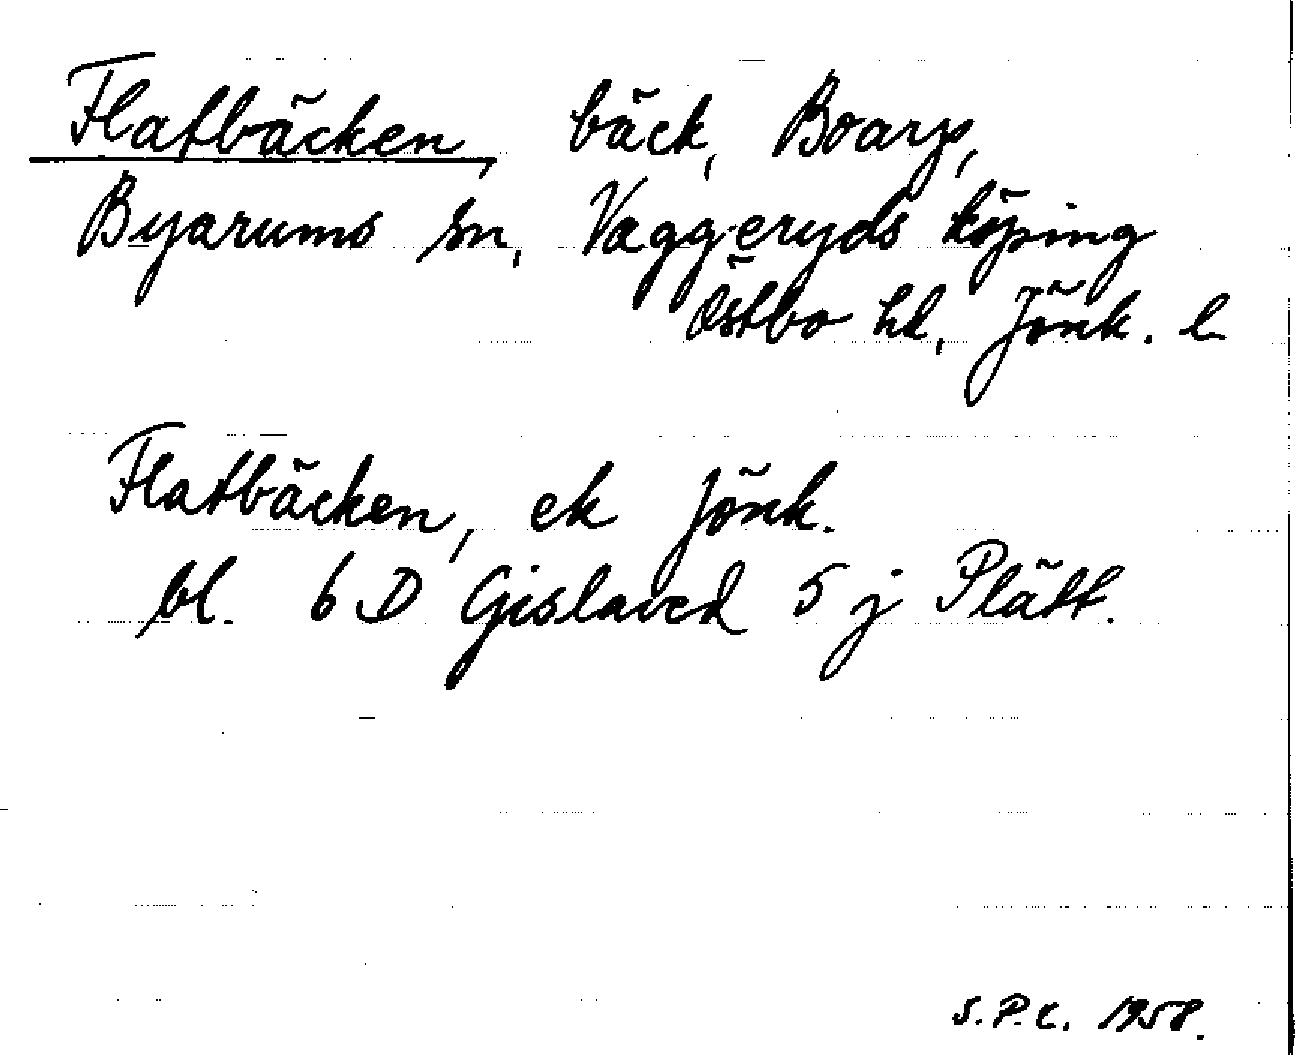 Flatbäcken, bäck, Boarp,
Byarums sn, Vaggeryds köping
Östbo hd, Jönk. l
Flatbäcken, ek Jönk.
bl. 6 D Gislaved 5 j Plätt.
S.P.C. 1958.